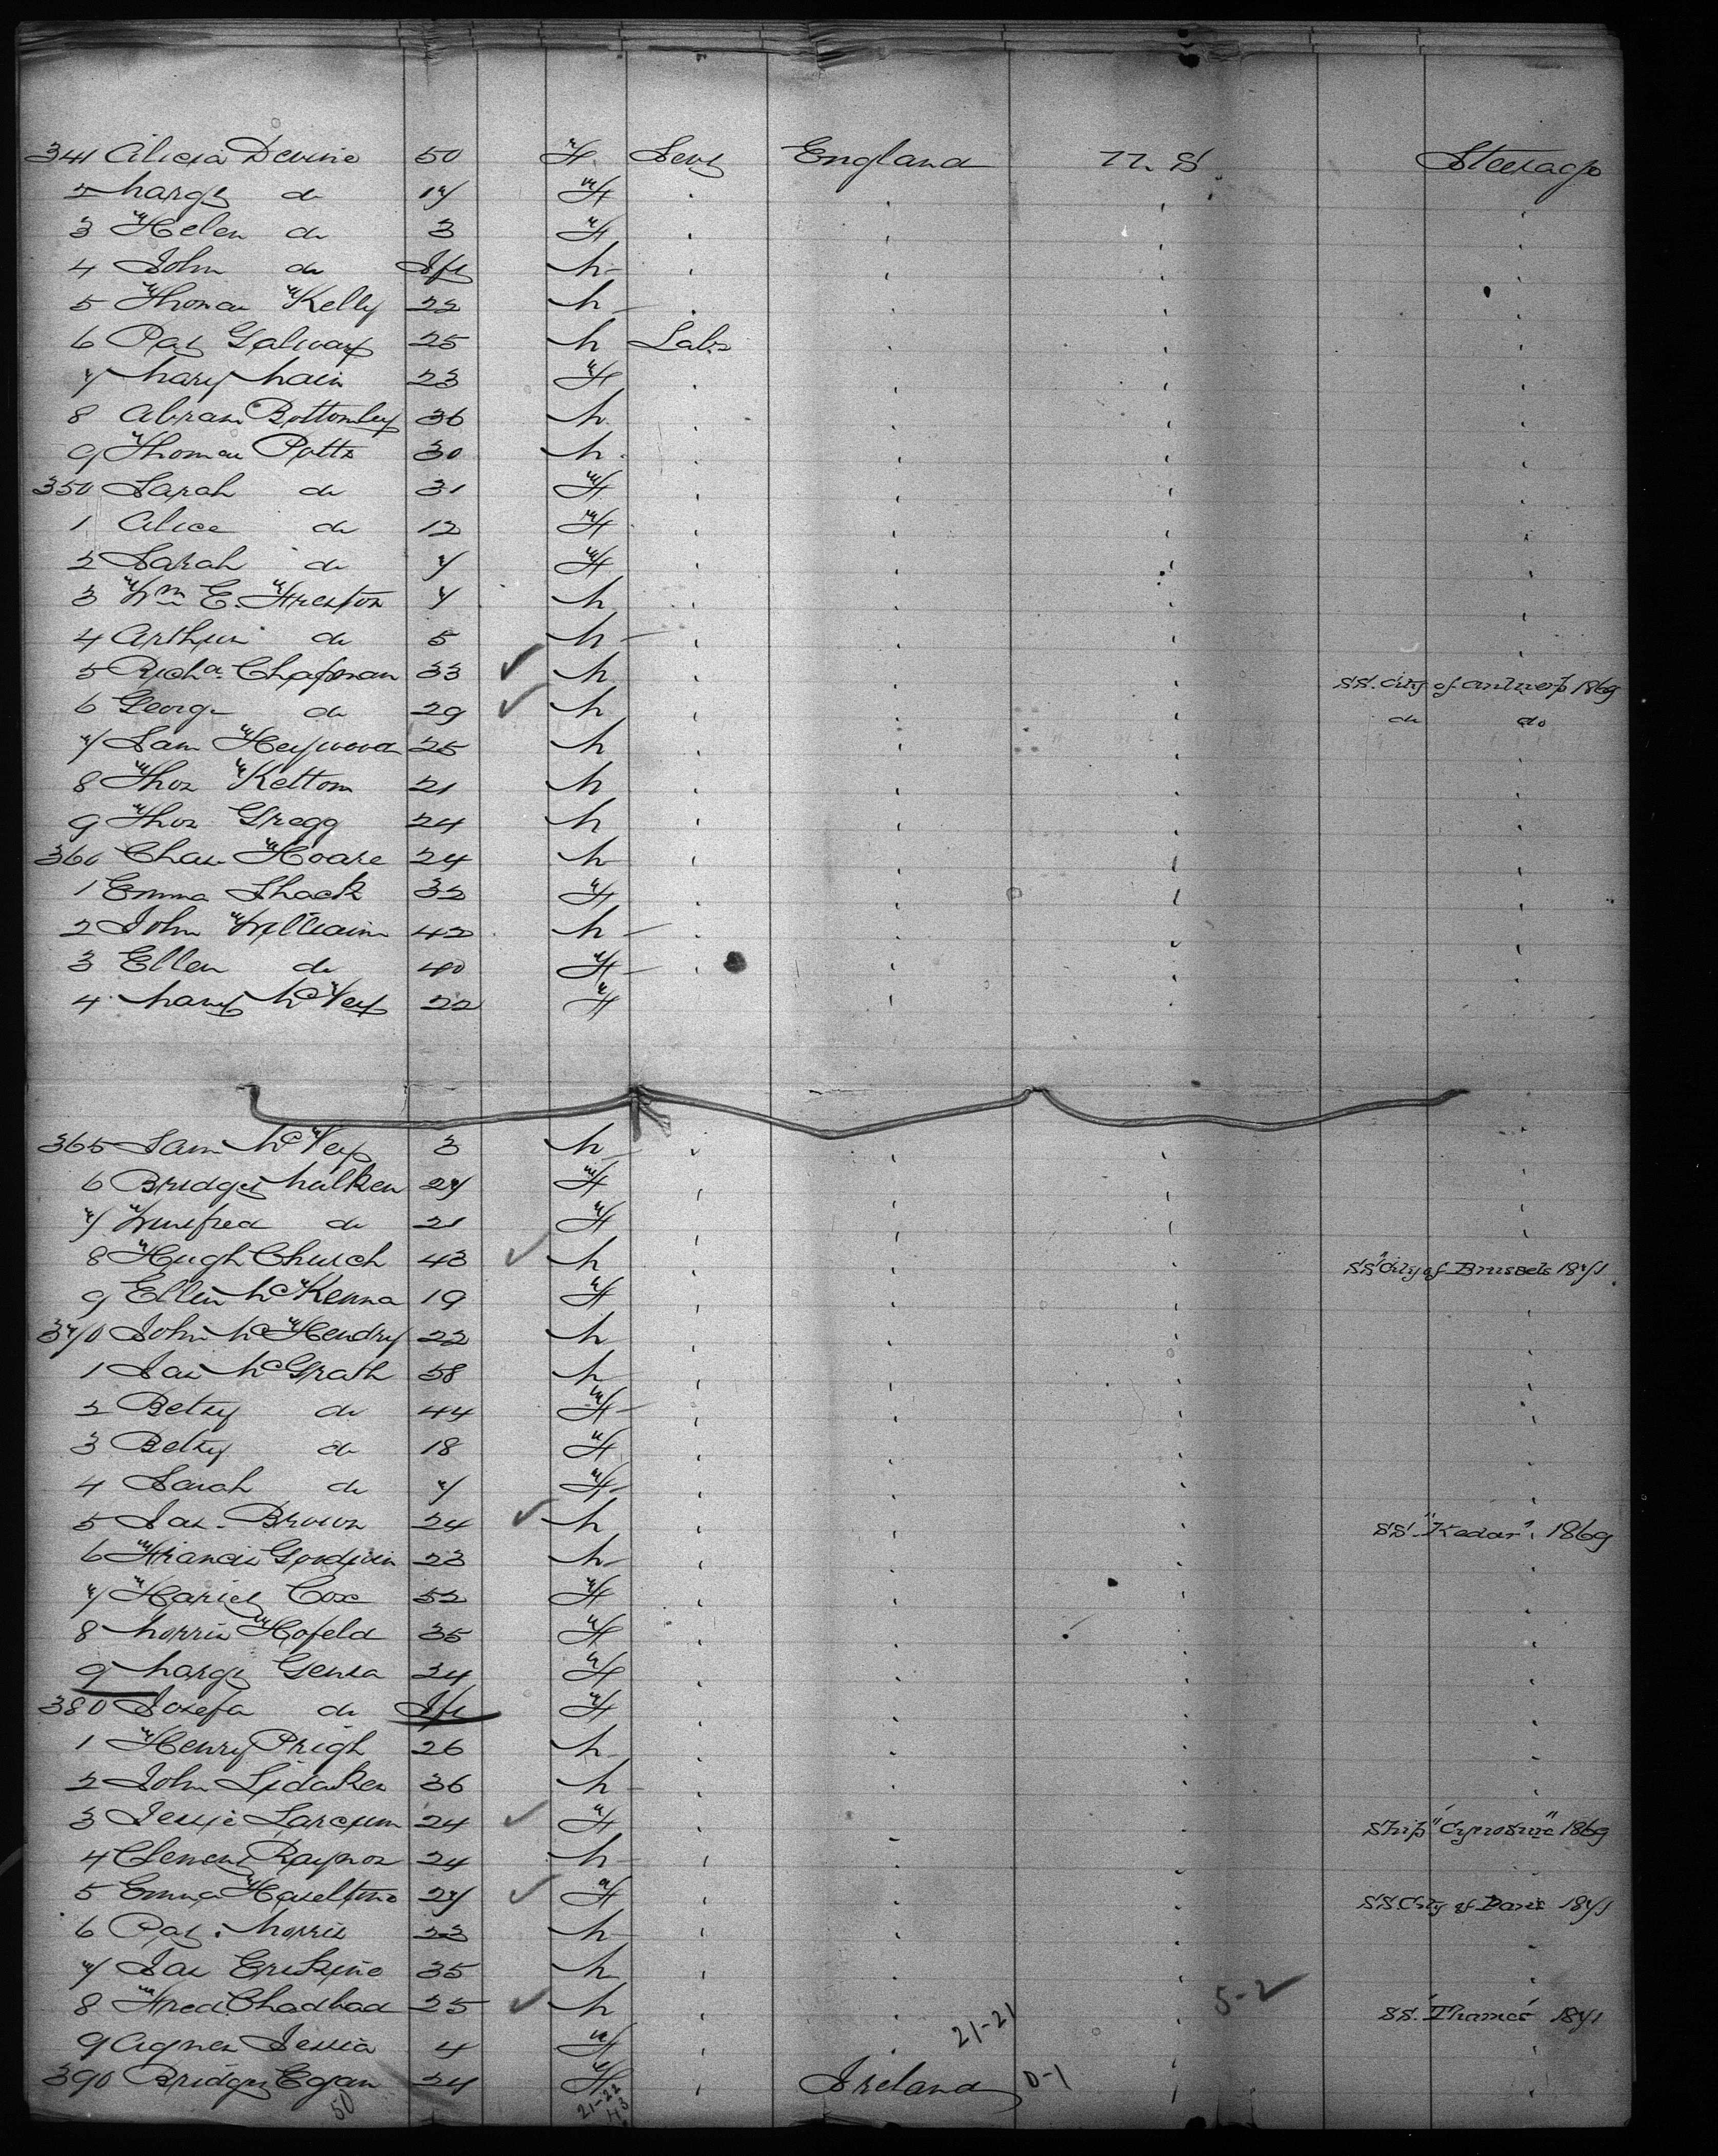 341 Alicia Devine 50 F Serv England U.S. Steerage
2 Margt do 17 F
3 Helen do 3 F
4 John do Inft M
5 Thomas Kelly 22 M
6 Pat Galway 25 M Labr
7 Mary Main 23 F
8 Abram Bottomley 36 M
9 Thomas Potts 30 M
350 Sarah do 31 F
1 Alice do 12 F
2 Sarah do 7 F
3 Wm E. Freston 7 M
4 Arthur do 5 M
5 Richd Chapman 33 ✓ M SS. City of Antwerp 1869
6 George do 29 ✓ M do do
7 Sam Heywood 25 M
8 Thos Kettom 21 M
9 Thos Gregg 24 M
360 Chas Hoare 24 M
1 Emma Shack 32 F
2 John William 42 M
3 Ellen do 40 F
4 Mary McVey 22 F
365 Sam McVey 3 M
6 Bridget Mulken 27 F
7 Winifred do 21 F
8 Hugh Church 43 ✓ M SS "City of Brussels 1871
9 Ellen McKenna 19 F
370 John McHendry 22 M
1 Jas McGrath 58 M
2 Betsy do 44 F
3 Betsy do 18 F
4 Sarah do 7 F
5 Jas. Brown 24 ✓ M SS. "Kedar". 1869
6 Francis Goodwin 23 M
7 Hariet Cox 52 F
8 Morris Hofeld 35 F
9 Margt Gensa 24 F
380 Josefa do Inft F
1 Henry Prigh 26 M
2 John Lidaker 36 M
3 Jessie Larcum 24 ✓ F Ship "Cynosure" 1869
4 Clement Raynor 24 M
5 Emma Haseltine 27 ✓ F SS City of Paris 1871
6 Pat. Morris 23 M
7 Jas Erskine 35 M
8 Fred. Chadbad 25 ✓ M 5-2 SS. "Thames" 1871
9 Agnes Jessia 4 F 21-21
390 Bridget Egan 24 F Ireland 0-1
50 21-22
43